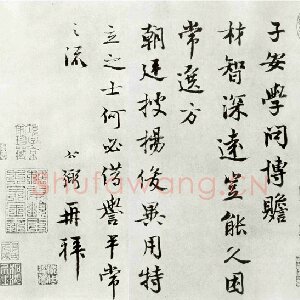 子安學問博贍
材智深遠豈能久困
常選方
朝廷搜揚俊異用特
立之士何必借譽平常
之流
公弼再拜
Shufawang.CN